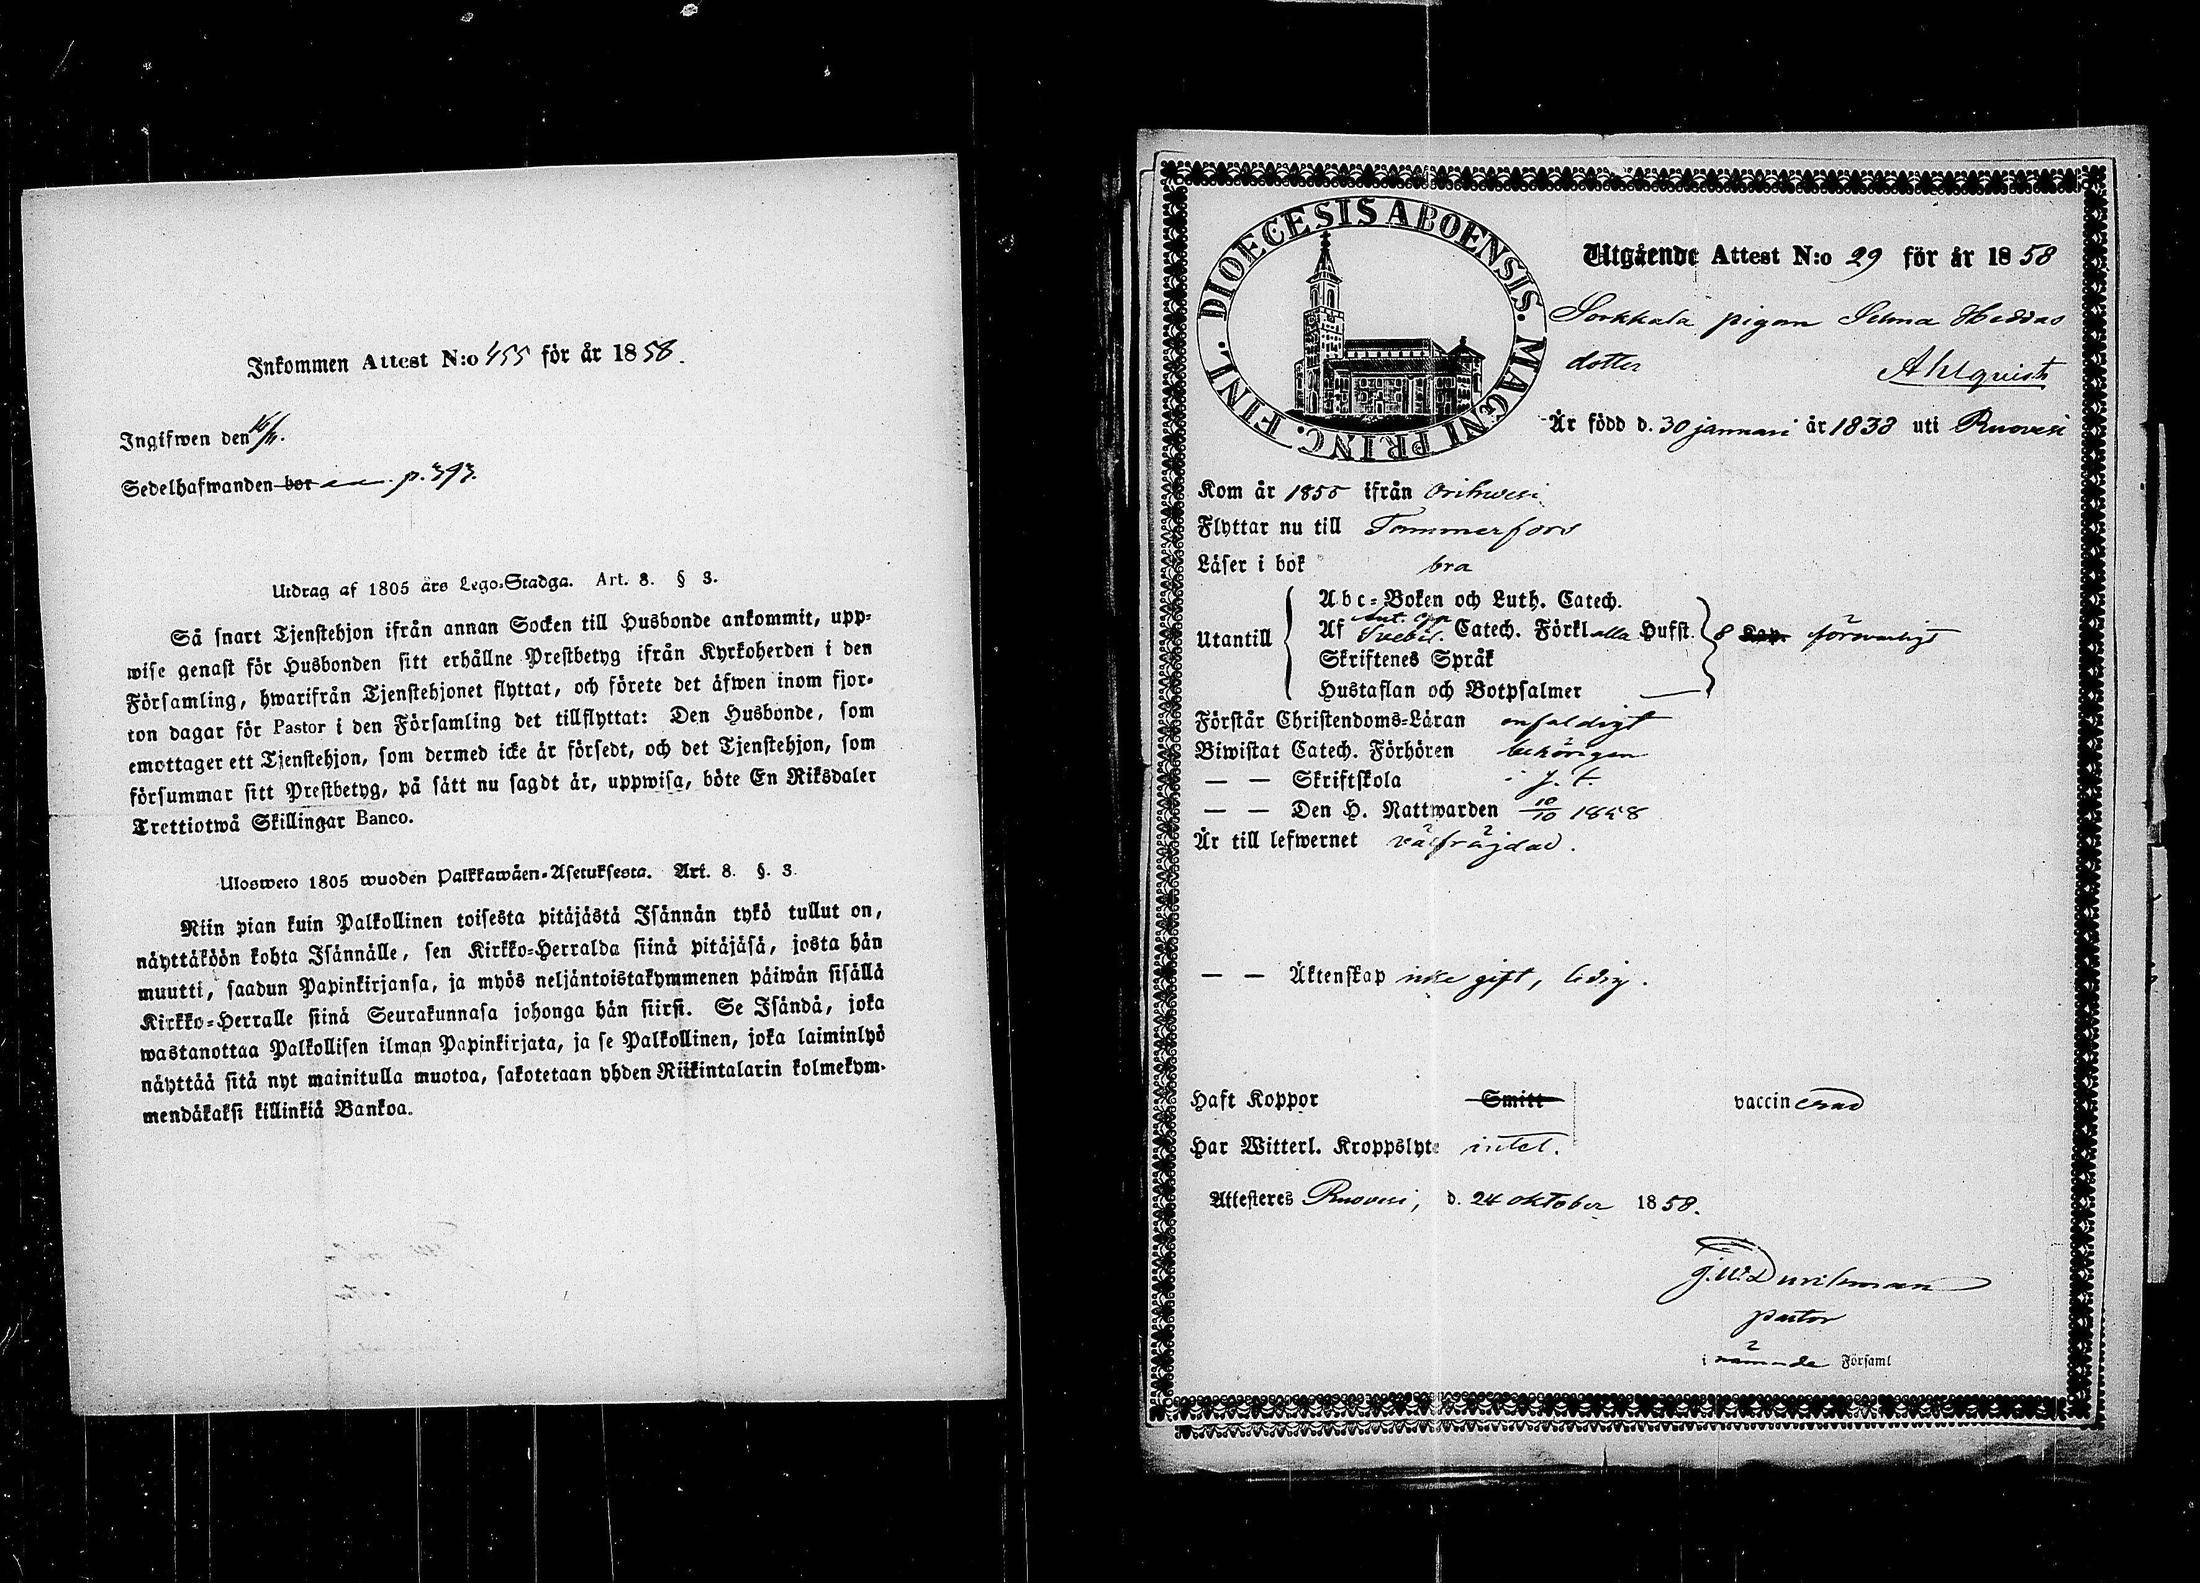 Inkommen Attest N:o 455 för år 1858.
Ingifwen den 16/11.
Sedelhafwanden bor p. 393.
Utdrag af 1805 års Lego-Stadga. Art. 8. § 3.
Så snart Tjenstehjon ifrån annan Socken till Husbonde ankommit, upp-
wise genast för Husbonden sitt erhållne Prestbetyg ifrån Kyrkoherden i den
Församling, hwarifrån Tjenstehjonet flyttat, och förete det äfwen inom fjor-
ton dagar för Pastor i den Församling det tillflyttat: Den Husbonde, som
emottager ett Tjenstehjon, som dermed icke är försedt, och det Tjenstehjon, som
försummar sitt Prestbetyg, på sätt nu sagdt är, uppwisa, böte En Riksdaler
Trettiotwå Skillingar Banco.
Ulosweto 1805 wuoden Palkkawäen-Asetuksesta. Art. 8. §. 3.
Niin pian kuin Palkollinen toisesta pitäjästä Isännän tykö tullut on,
näyttäköön kohta Isännälle, sen Kirkko-Herralda siinä pitäjäsä, josta hän
muutti, saadun Papinkirjansa, ja myös neljäntoistakymmenen päiwän sisällä
Kirkko-Herralle siinä Seurakunnasa johonga hän siirsi. Se Isändä, joka
wastanottaa Palkollisen ilman Papinkirjata, ja se Palkollinen, joka laiminlyö
näyttää sitä nyt mainitulla muotoa, sakotetaan yhden Riikintalarin kolmekym-
mendäkaksi killinkiä Bankoa.
DIOECESIS ABOENSIS. MAGNI PRINC. FINL.
Utgående Attest N:o 29 för år 1858
Sorkkala pigan Selma Heddas
dotter Ahlqvist
Är född d. 30 januari år 1838 uti Ruovesi
Kom år 1855 ifrån Orihvesi
Flyttar nu till Tammerfors
Läser i bok bra
Abc-Boken och Luth. Catech.
Utantill Af Svebel. Catech. Förkl alla Hufst. 8 Kap. försvarligt
Skriftenes Språk
Hustaflan och Botpsalmer
Förstår Christendoms-Läran enfaldigt
Biwistat Catech. Förhören behörigen
— — Skriftskola i j. t.
— — Den H. Nattwarden 10/10 1858
Är till lefwernet välfrägdad.
— — Äktenskap icke gift, ledig.
Haft Koppor Smitt vaccinerad
Har Witterl. Kroppslyte intet.
Attesteres Ruovesi, d. 24 oktober 1858.
J. W. Durchman
pastor
i nämnde Församl